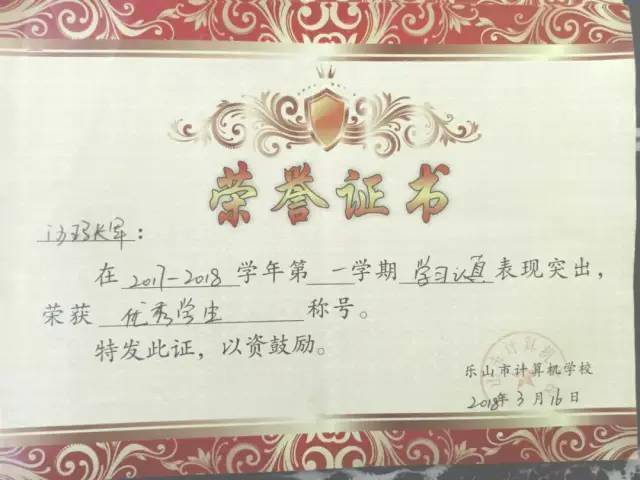 荣誉证书
长军：
在 2017-2018 学年第 一学期 学习认真表现突出，
荣获 优秀学生 称号。
特发此证，以资鼓励。
乐山市计算机学校
2018年3月16日